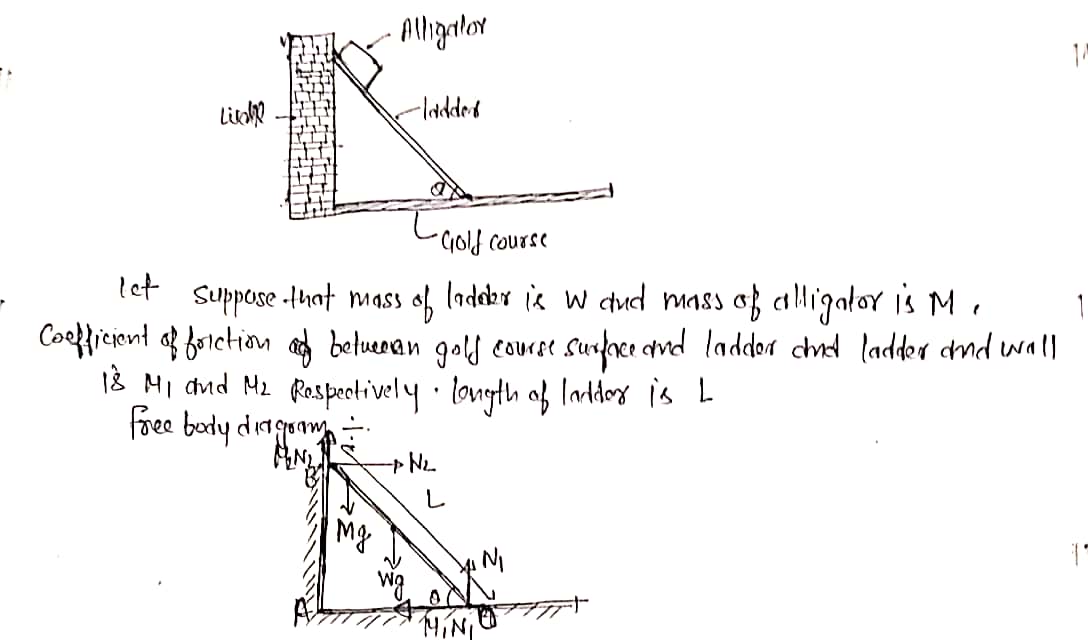 Alligator
ladder
θ
Golf course
let suppose that mass of ladder is W and mass of alligator is M,
Coefficient of friction between golf course surface and ladder and ladder and wall
is M1 and M2 Respectively. length of ladder is L
free body diagram ÷
M2N2
N2
B
L
Mg
N1
Wg
θ
A
M1N1